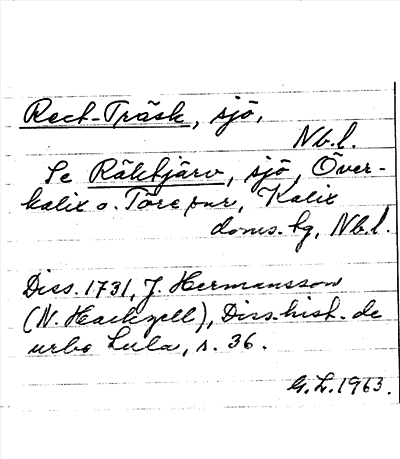 Rect-Träsk, sjö,
Nb.l.
Se Räktjärv, sjö, Över-
kalix o. Töre snr, Kalix
doms.bg, Nb.l.
Diss. 1731, J. Hermansson
(N. Hackzell), Diss. hist. de
urbe Lula, s. 36.
G.L. 1963.